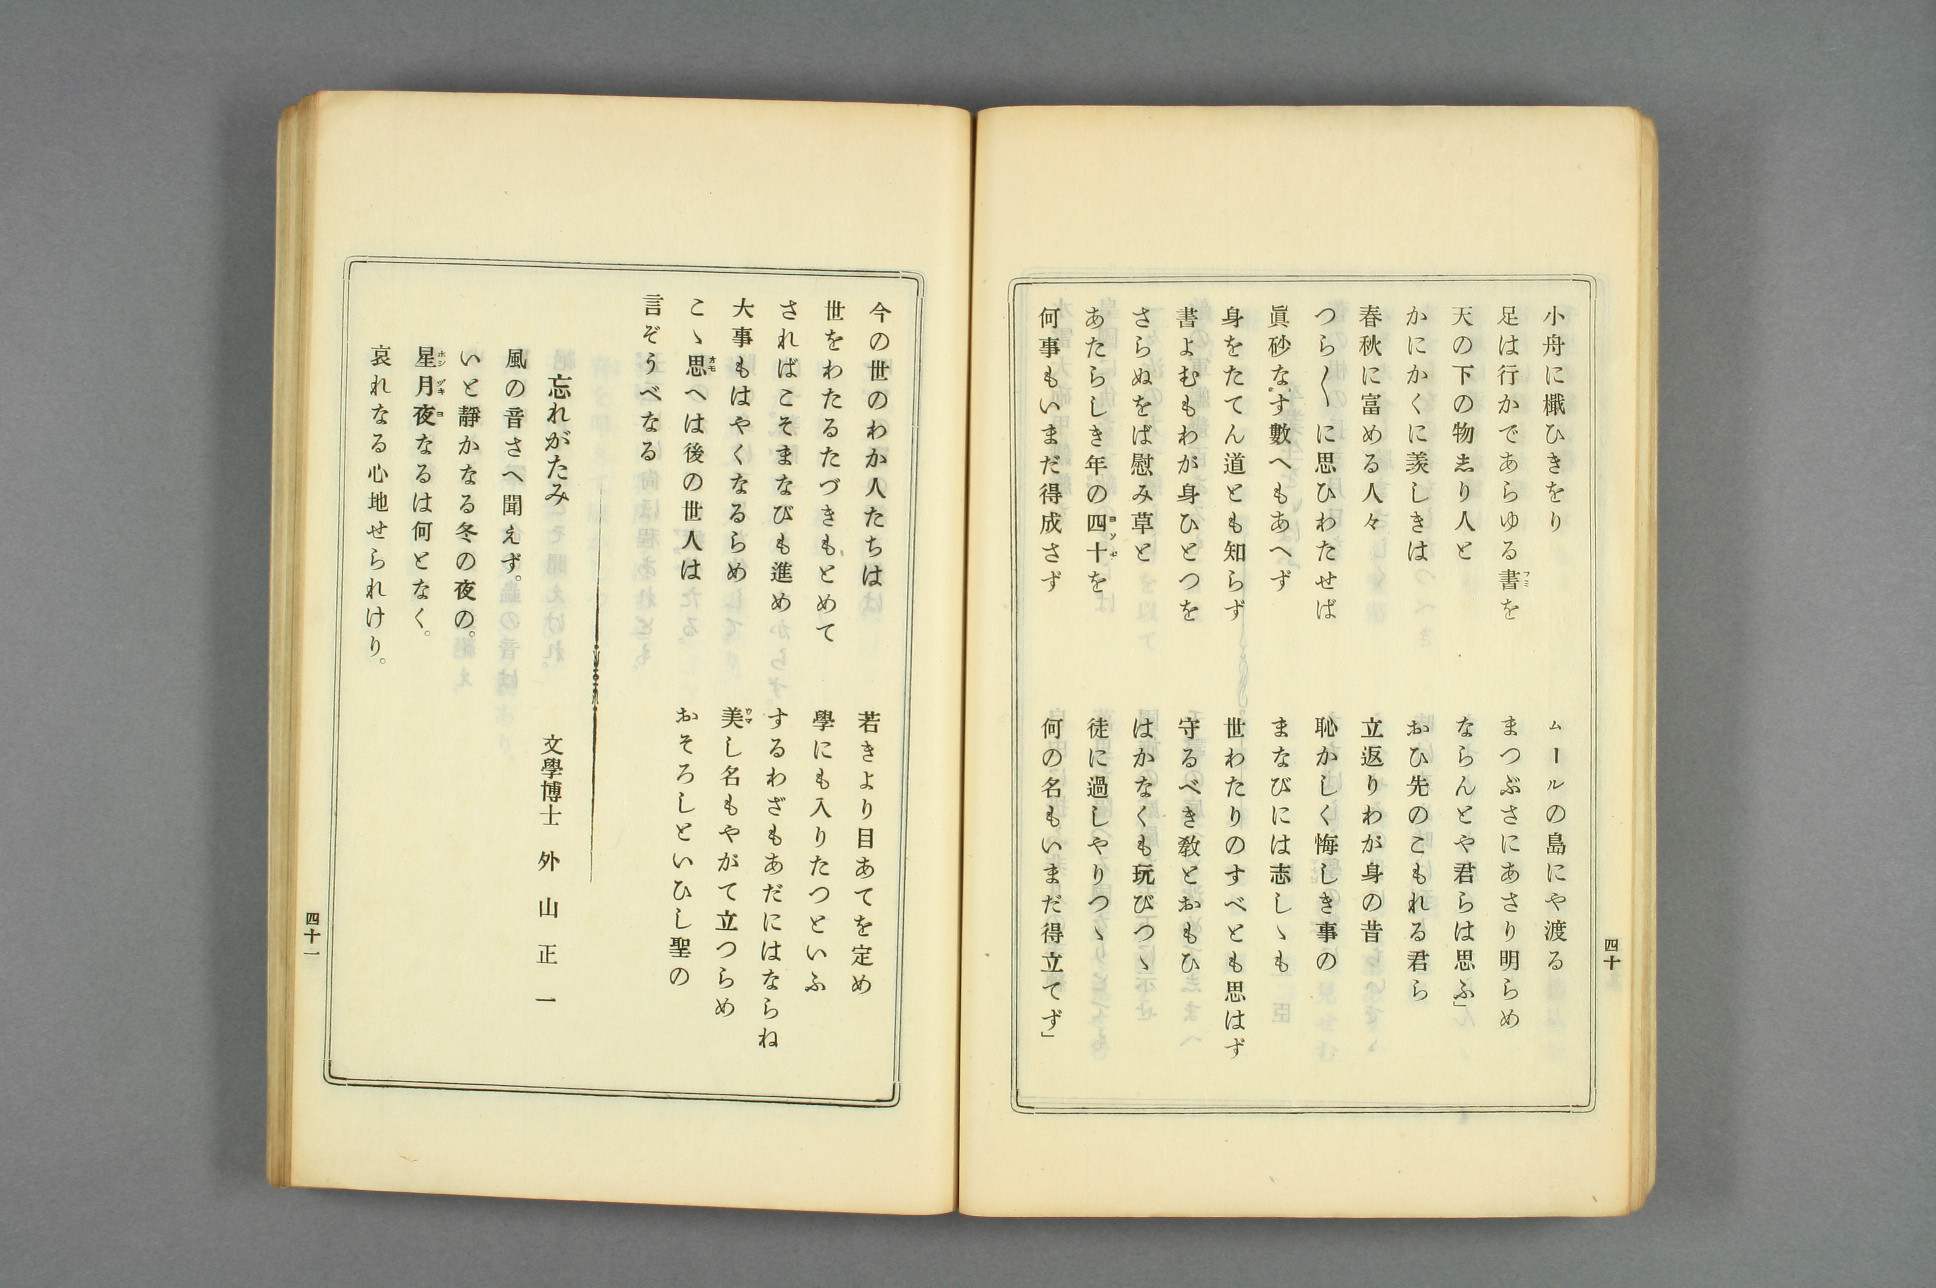 小舟に檝ひきをり　　ムールの島にや渡る
足は行かであらゆる書を　　まつぶさにあさり明らめ
天の下の物志り人と　　ならんとや君らは思ふ」
かにかくに羨しきは　　おひ先のこもれる君ら
春秋に富める人々　　立返りわが身の昔
つら〱に思ひわたせば　　恥かしく悔しき事の
眞砂なす數へもあへず　　まなびには志しゝも
身をたてん道とも知らず　　世わたりのすべとも思はず
書よむもわが身ひとつを　　守るべき敎とおもひ
さらぬをば慰み草と　　はかなくも玩びつゝ
あたらしき年の四十を　　徒に過しやりつゝ
何事もいまだ得成さず　　何の名もいまだ得立てず」
四十
今の世のわか人たちは　　若きより目あてを定め
世をわたるたづきもとめて　　學にも入りたつといふ
さればこそまなびも進め　　するわざもあだにはならね
大事もはやくなるらめ　　美し名もやがて立つらめ
こゝ思へは後の世人は　　おそろしといひし聖の
言ぞうべなる
忘れがたみ　　文學博士　外山正一
風の音さへ聞えず。
いと靜かなる冬の夜の。
星月夜なるは何となく。
哀れなる心地せられけり。
四十一